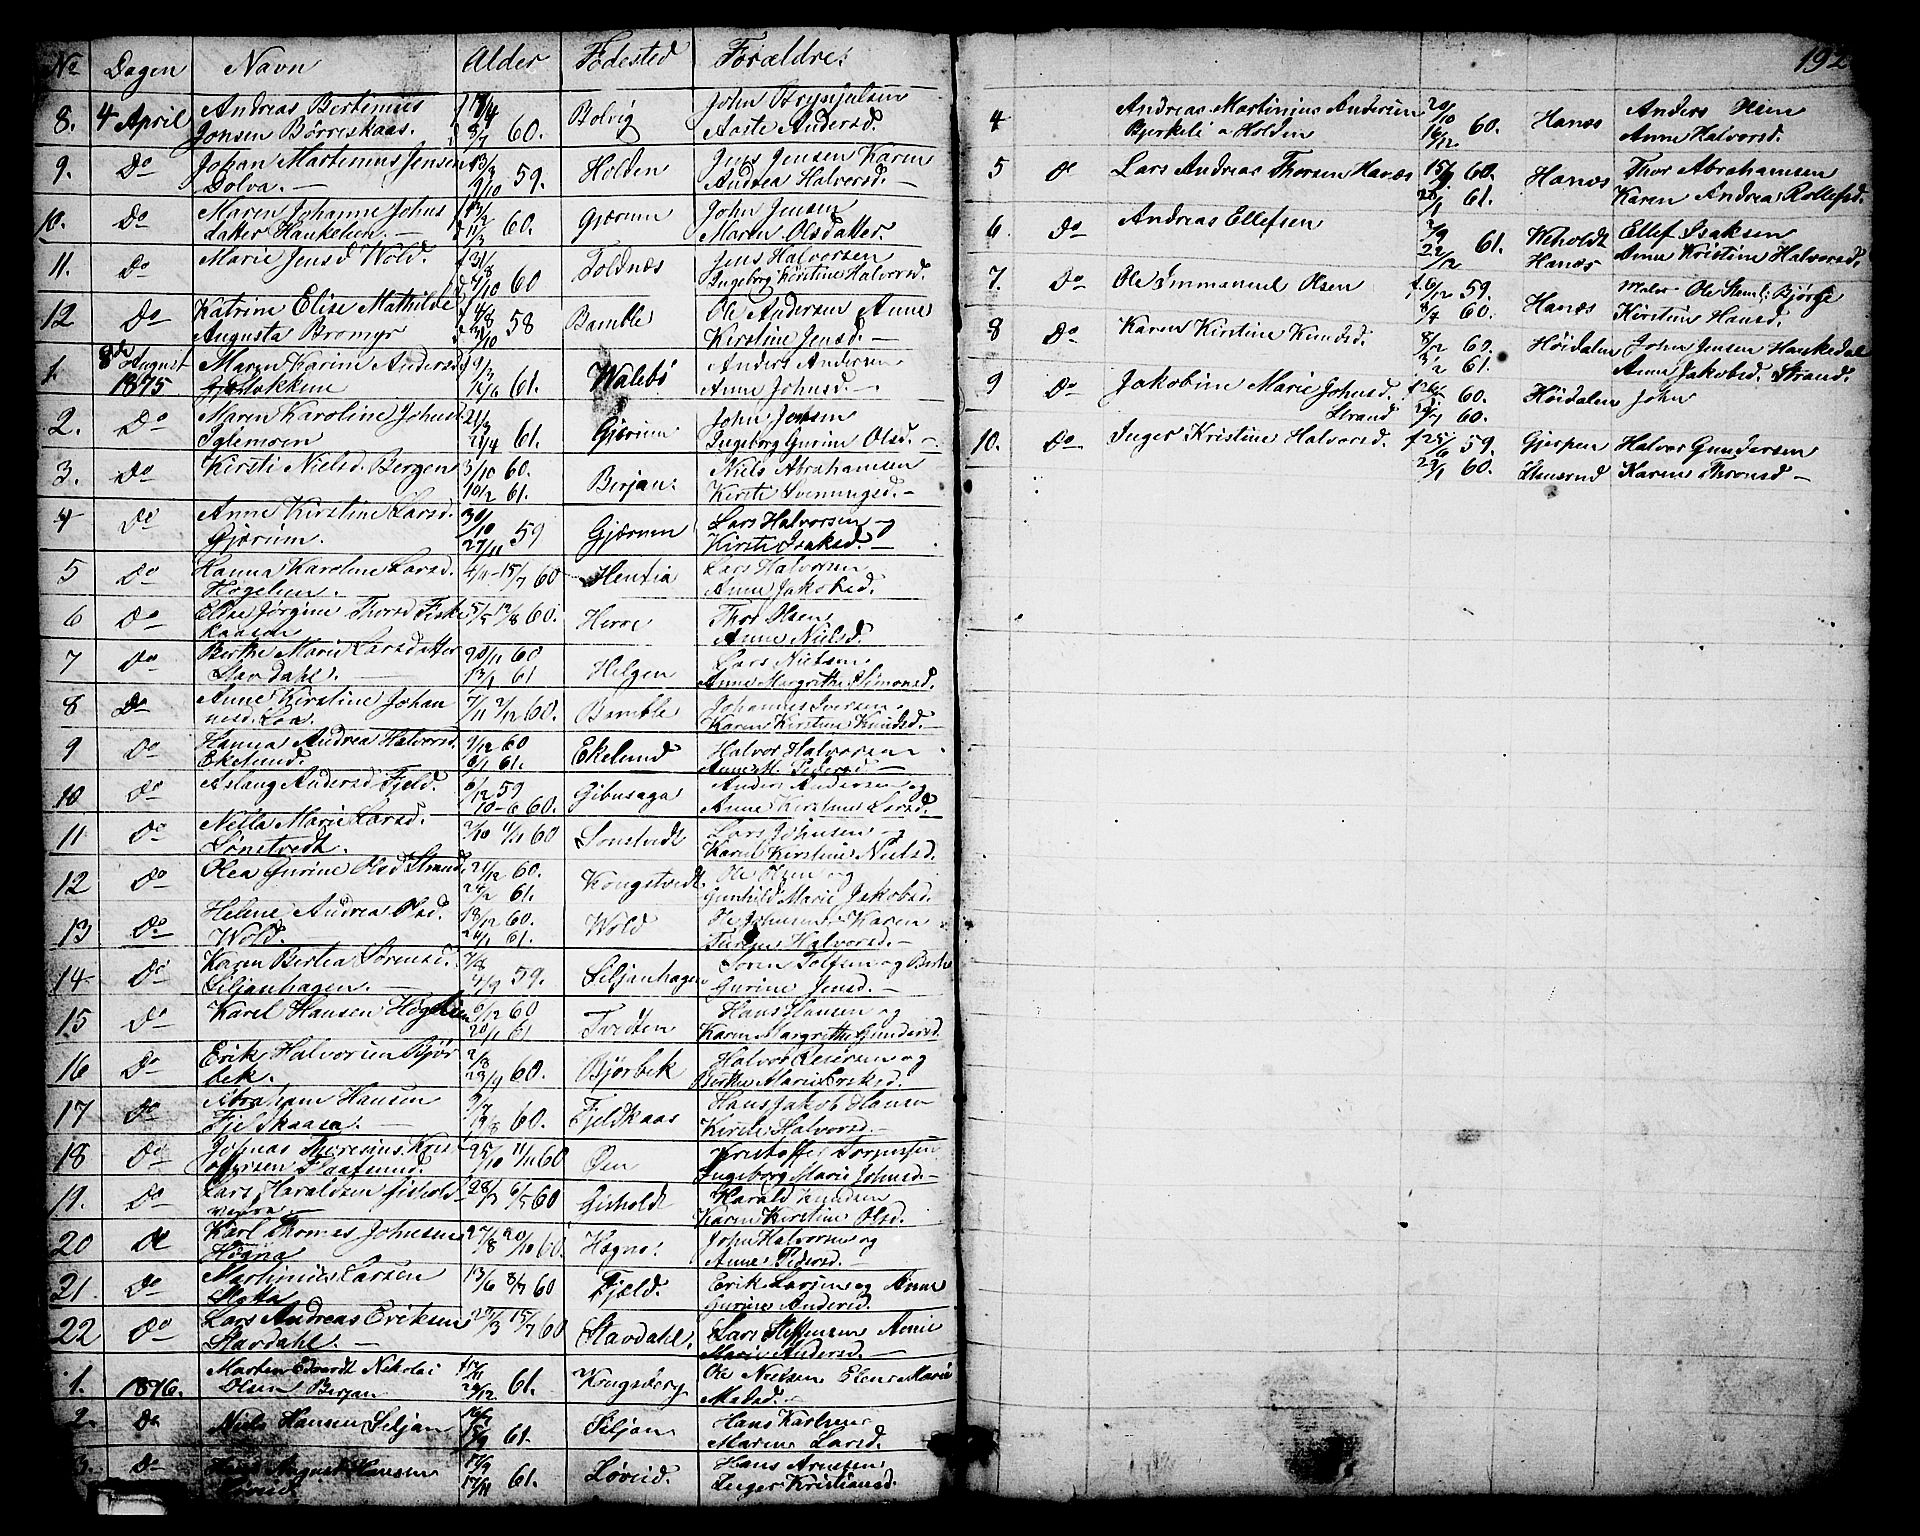 No Dagen Navn Alder Fødested Forældre
8. 4 April Andreas Bertinius f 17/4 60. Bolvig John Brynjulsen
Jonsen Børreskaas. d 8/7 Aaste Andersd.
9. Do Johan Martinius Jensen 13/3 59. Holden Jens Jensen Karen
Dolva. — 9/10 Andrea Halvorsd. —
10. Do Maren Johanne Johns 60. Gjærum John Jensen
datter Haukelien. 11/3 Maren Olsdatter.
11. Do Marie Jensd Wold. 60 Foldnæs Jens Halvorsen
Ingeborg Kirstine Halvorsd.
12 Do Katrine Elise Mathilde 58 Bamble Ole Andersen Anne
Augusta Bromyr Kirstine Jensd. —
1. 8de August Maren Karine Andersd 9/3 61. Walebø Anders Andersen
1875 Anne Johnsd. —
2. Do Maren Karoline Johnsd 21/3 61. Gjærum John Jensen
Iglemoen 21/4 Ingeborg Gurine Olsd. —
3. Do Kirsti Nielsd. Bergen 3/10 60. Berjan Niels Abrahamsen
10/2 61. Kirsti Svenungsd. —
4 Do Anne Kirstine Larsd. 30/10 59 Gjærum Lars Halvorsen og
Gjærum. 27/11 Kirsti Isaksd. —
5 Do Hanna Karoline Larsd. 4/11 - 15/7 60 Lars Halvorsen
Høgelien. — Anne Jakobsd.
6 Do Elise Jørgine Thorsd Fiske 5/5 12/8 60. Herre Thor Olsen
kaasen Anne Nielsd.
7 Do Berthe Marie Larsdatter 20/11 60 Helgen Lars Nielsen
Stavdahl. — 13/1 61 Anne Margrethe Simonsd.
8 Do Anne Kirstine Johan 7/11 2/12 60. Bamble Johannes Iversen
nesd. Karen Kirstine Knudsd. —
9 Do Hanna Andrea Halvorsd. 9/12 60 Ekelund Halvor Halvorsen
Ekelund. 6/1 61. Anne M. Pedersd —
10 Do Aslaug Andersd Fjeld. 6/12 59 Anders Andersen og
10-6 60. Anne Kirstine Larsd.
11. Do Nella Marie Larsd. 2/10 11/11 60 Sønstvedt Lars Johnsen og
Sønstvedt. Karen Kirstine Nielsd.
12 Do Olea Gurine Olsd Strand 21/12 60. Kongstvedt Ole Olsen og
24/2 61. Gunhild Marie Jakobsd.
13 Do Helene Andrea Olsd. 18/12 60. Wold Ole Johnsen Karen
Wold. 24/1 61. Halvorsd. —
14 Do Karen Bertea Sørensd. 7/8 59. Siljanhagen Søren Tolfsen og Berthe
Siljanhagen. — 4/9 Gurine Jensd. —
15 Do Karel Hansen Høgelien 6/12 60 Tvedten Hans Hansen og
20/1 61 Karen Margrethe Gundersd.
16 Do Erik Halvorsen Bjør 2/8 60. Bjørbek Halvor og
bek. 23/9 Berthe Marie Eriksd.
17 Do Abraham Hansen 3/7 60. Fjeldkaas Hans Jakob Hansen
Fjelskaasa. — Kirsti Halvorsd. —
18 Do Johnas Kris 25/10 11/11 60 Øen Kristoffer Torgersen
Ingeborg Marie Johnsd —
19. Do Lars Haraldsen Gisholt 28/2 6/5 60 Gisholdt Harald Knudsen
Karen Kirstine Olsd.
20 Do Karl Thomas Johnsen 27/8 20/10 60. Høgna John Halvorsen og
Høgna Anne Pedersd.
21. Do Martinius Larsen 13/6 8/7 60 Fjæld. Erik Larsen og Anne
Gurine Andersd.
22 Do Lars Andreas Eriksen 24/3 15/7 60 Stavdahl. Lars Steffensen Anne
Stavdahl. — Marie Andersd. —
1. 1876. Marten Edvardt Nikolai 61. Kongsberg Ole Nielsen Elene Marie
Olsen Berjan Madsd.
2. Do Niels Hansen Siljan 61. Siljan Hans Karlsen
Marine Larsd.
3. Do August Hansen 17/9 61. Løvud. Hans Arnesen
Løvud 17/11 Inger Kristiansd.
192
4 Andreas Martinius Andersen 20/10 60. Hanæs Anders Olsen
Bjerkeli a Holden 16/12 Anne Halvorsd.
5 Do Lars Andreas Thorsen Hanæs 60. Hanæs Thor Abrahamsen
61. Karen Andrea Rollefsd.
6. Do Andreas Ellefsen 3/9 61. Weholdt Ellef Isaksen
22/12 Hanæs Anne Kristine Halvorsd.
7. Do Ole Immanuel Olsen f. 6/12 59. Hanæs Ole Bjørge
8/4 60. Kirstine Hansd.
8 Do Karen Kirstine Knudsd. 8/12 60. Høidalen John Jensen Haukedal
3/2 61. Anne Jakobsd. Strand.
9 Do Jakobine Marie Johnsd. 60. Høidalen John
Strand 60.
10. Do Inger Kristine Halvorsd. f 25/6 59. Gjerpen Halvor Gundersen
22/1 60. Stensrud Karen Thronsd —